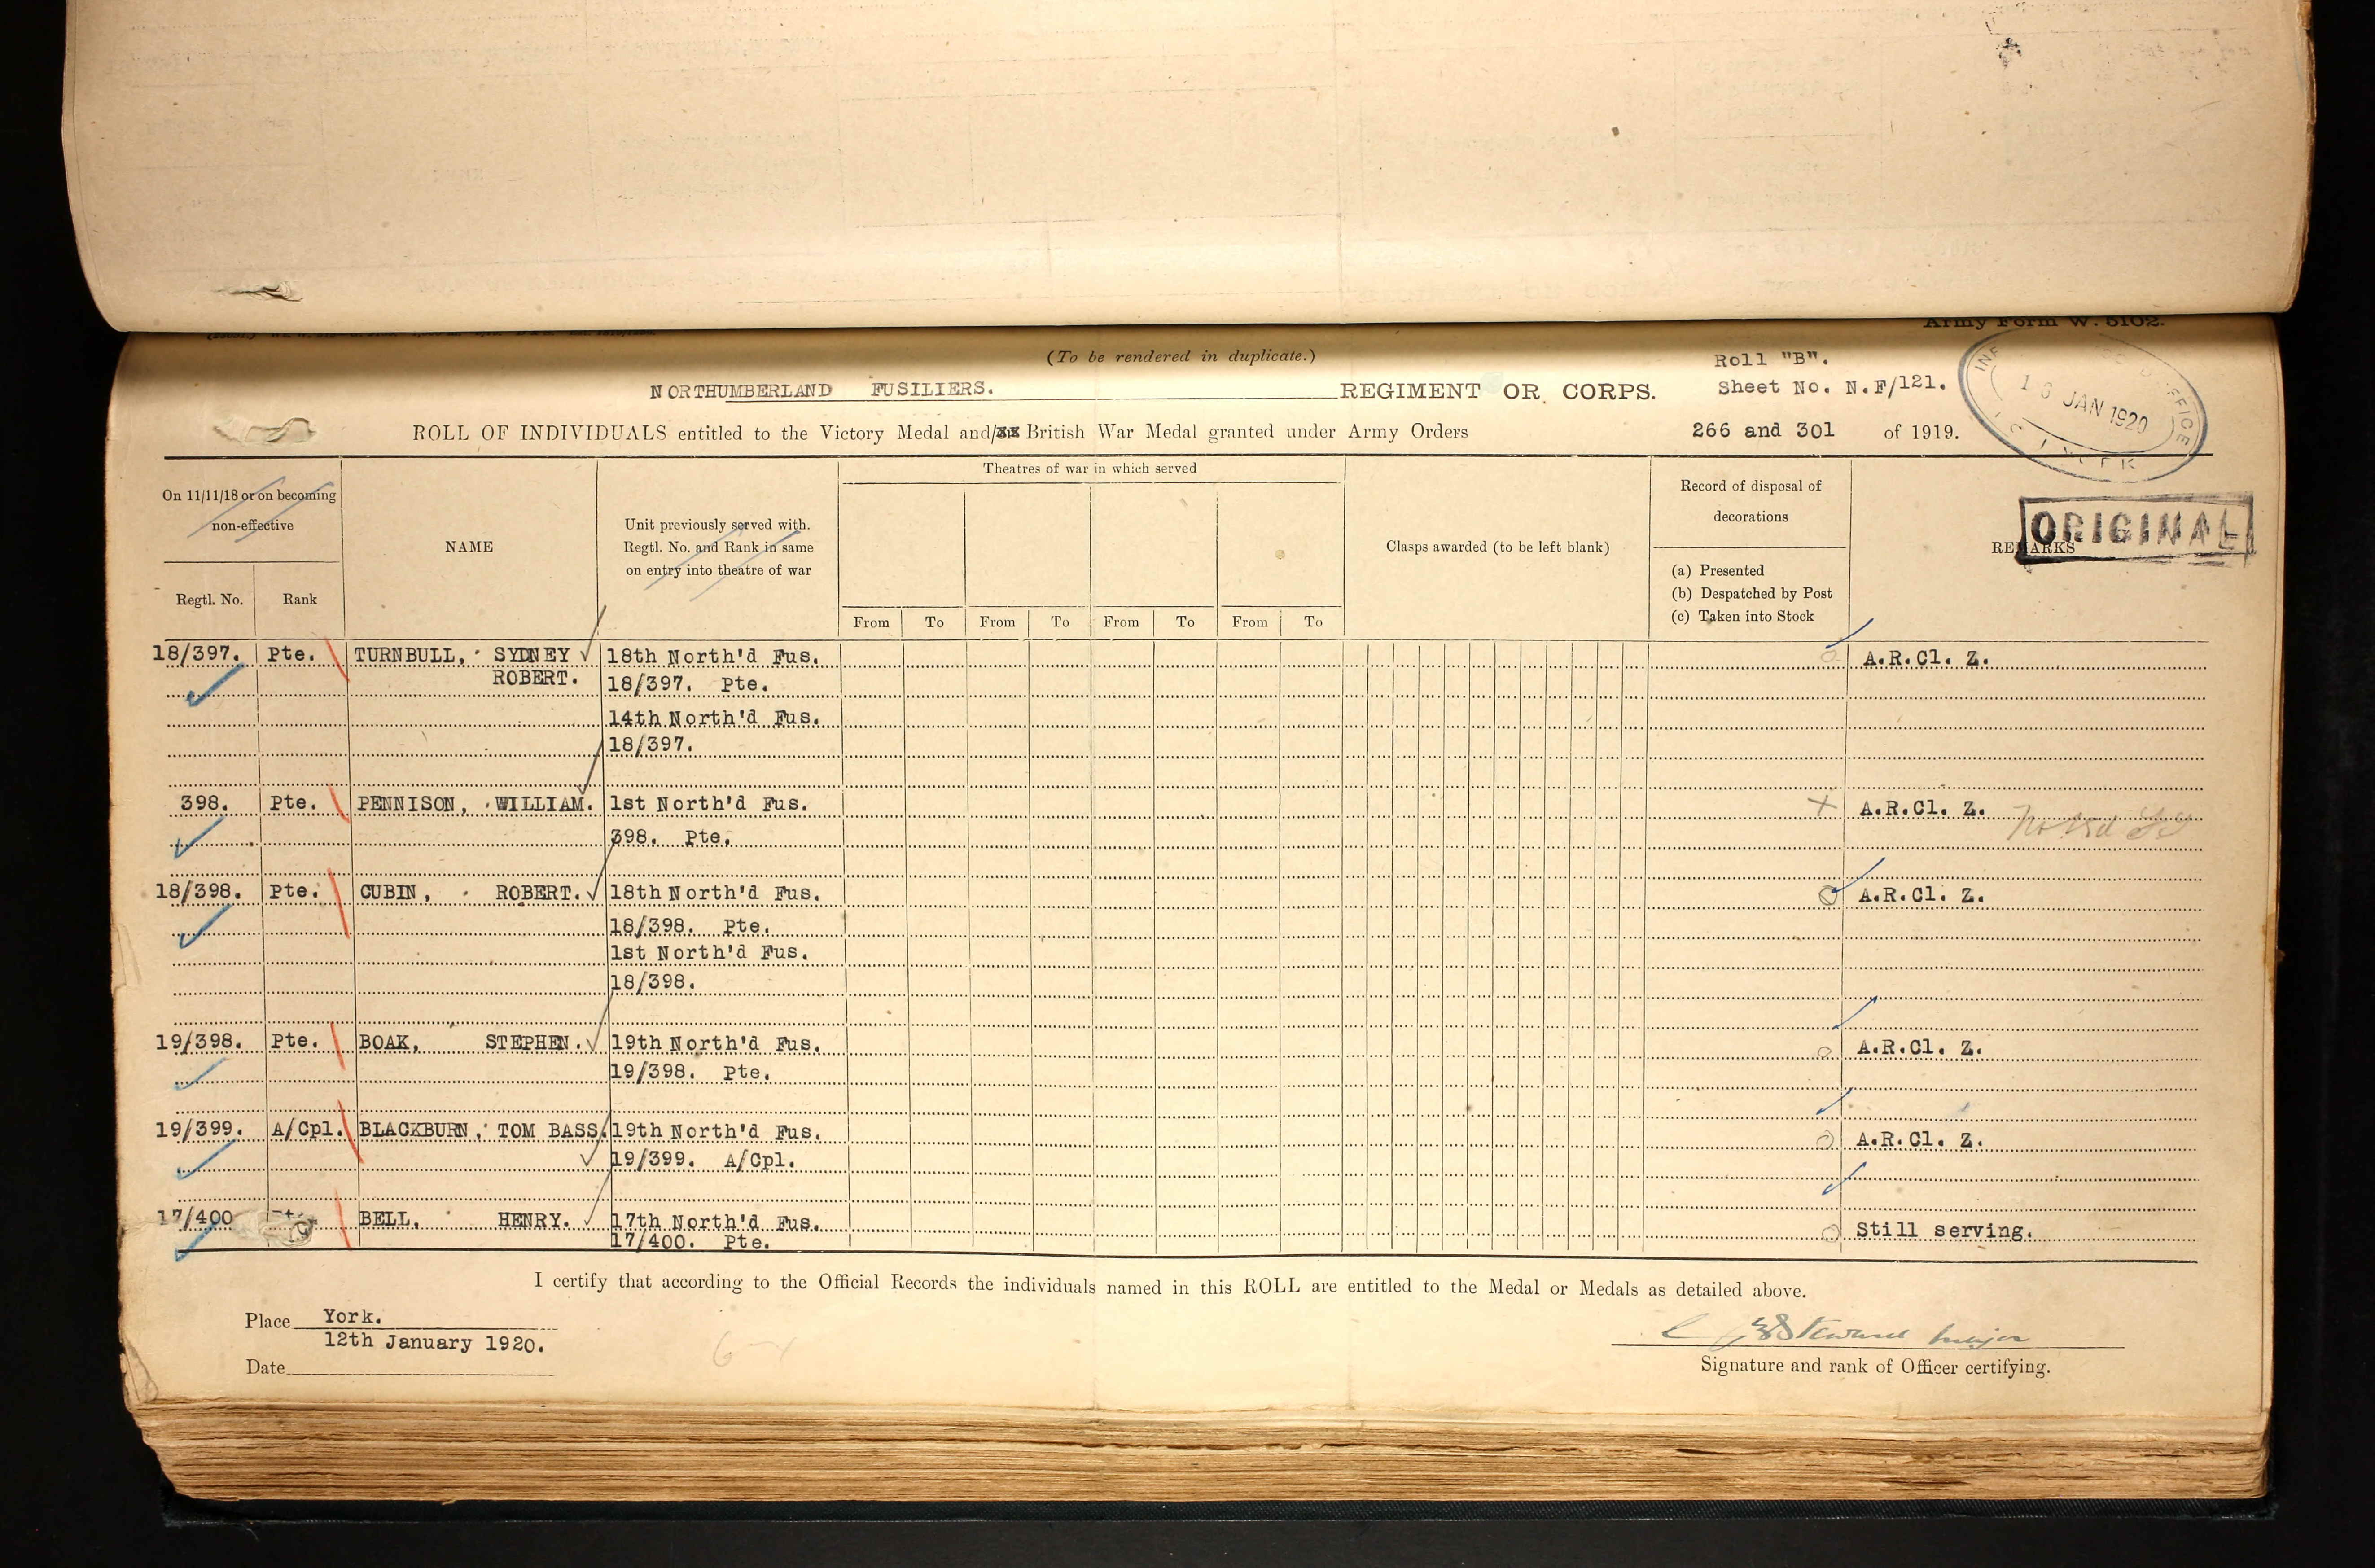 Army Form W. 5102.
(To be rendered in duplicate.)
Roll "B".
NORTHUMBERLAND FUSILIERS. REGIMENT OR CORPS. Sheet No. N.F/121.
16 JAN 1920
ROLL OF INDIVIDUALS entitled to the Victory Medal and/ British War Medal granted under Army Orders 266 and 301 of 1919.
ORIGINAL
On 11/11/18 or on becoming non-effective
Regtl. No.
Rank
NAME
Unit previously served with. Regtl. No. and Rank in same on entry into theatre of war
Theatres of war in which served
From To From To From To From To
Clasps awarded (to be left blank)
Record of disposal of decorations
(a) Presented
(b) Despatched by Post
(c) Taken into Stock
REMARKS
18/397. Pte. TURNBULL, SYDNEY 18th North'd Fus. A.R.Cl. Z.
ROBERT. 18/397. Pte.
14th North'd Fus.
18/397.
398. Pte. PENNISON, WILLIAM. 1st North'd Fus. A.R.Cl. Z.
398. Pte.
18/398. Pte. CUBIN, ROBERT. 18th North'd Fus. A.R.Cl. Z.
18/398. Pte.
1st North'd Fus.
18/398.
19/398. Pte. BOAK, STEPHEN. 19th North'd Fus. A.R.Cl. Z.
19/398. Pte.
19/399. A/Cpl. BLACKBURN, TOM BASS. 19th North'd Fus. A.R.Cl. Z.
19/399. A/Cpl.
17/400 BELL, HENRY. 17th North'd Fus. Still serving.
17/400. Pte.
I certify that according to the Official Records the individuals named in this ROLL are entitled to the Medal or Medals as detailed above.
Place York.
12th January 1920.
Date
Major
Signature and rank of Officer certifying.